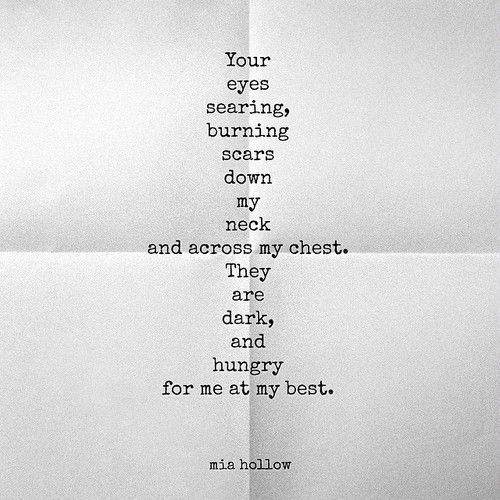 Your
eyes
searing,
burning
scars
down
my
neck
and across my chest.
They
are
dark,
and
hungry
for me at my best.
mia hollow